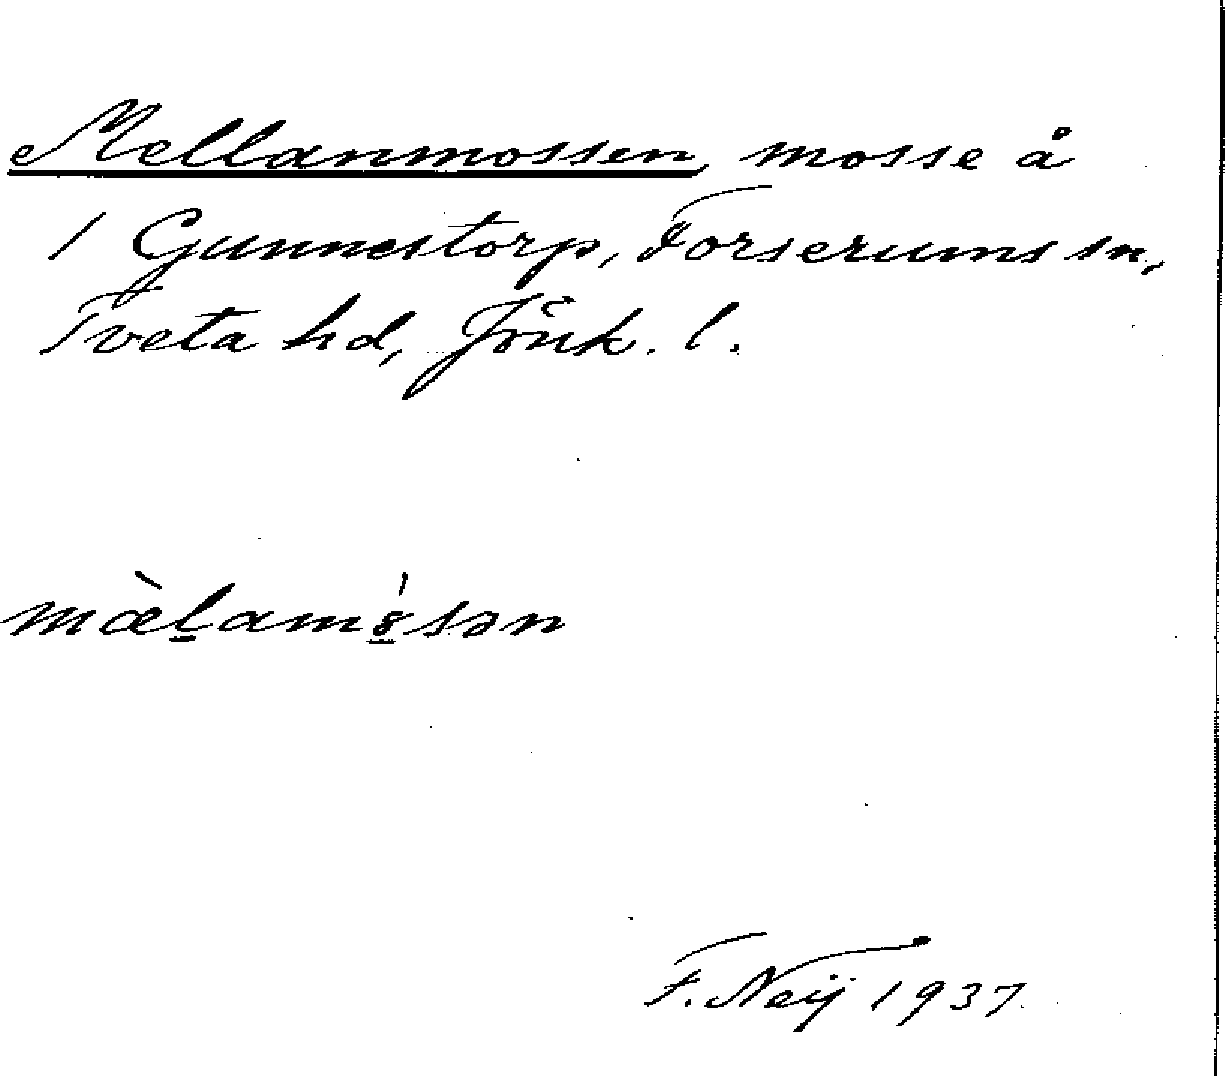 Mellanmossen, mosse å
/ Gunnestorp, Forserums sn,
Tveta hd, Jönk. l.
mæ̀l̠amó̠sən
F. Neij 1937